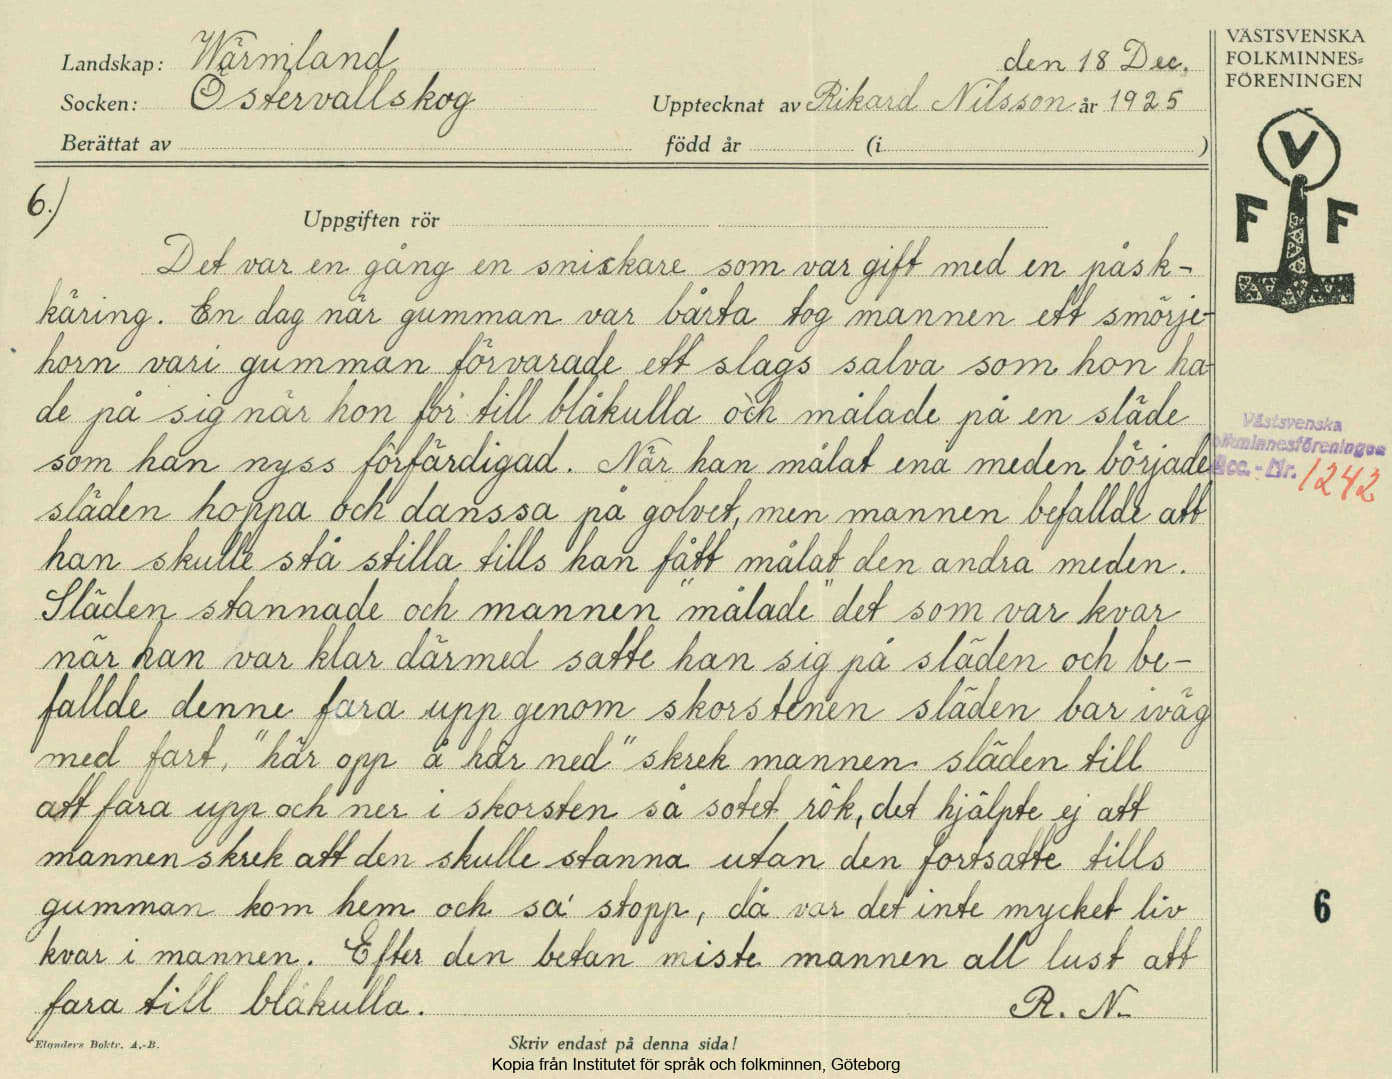 Landskap: Wärmland
Socken: Östervallskog
Berättat av
den 18 Dec.
Upptecknat av Rikard Nilsson år 1925
född år (i )
VÄSTSVENSKA
FOLKMINNES=
FÖRENINGEN
V
F F
6.)
Uppgiften rör
Det var en gång en snickare som var gift med en påsk-
käring. En dag när gumman var bårta tog mannen ett smörje-
horn vari gumman förvarade ett slags salva som hon ha-
de på sig när hon for till blåkulla och målade på en släde
som han nyss förfärdigad. När han målat ena meden började
släden hoppa och danssa på golvet, men mannen befallde att
han skulle stå stilla tills han fått målat den andra meden.
Släden stannade och mannen "målade" det som var kvar
när han var klar därmed satte han sig på släden och be-
fallde denne fara upp genom skorstenen släden bar iväg
med fart, "här opp å här ned" skrek mannen släden till
att fara upp och ner i skorsten så sotet rök, det hjälpte ej att
mannen skrek att den skulle stanna utan den fortsatte tills
gumman kom hem och sa' stopp, då var det inte mycket liv
kvar i mannen. Efter den betan miste mannen all lust att
fara till blåkulla.
R. N.
Västsvenska
Folkminnesföreningen
Acc. - Nr. 1242
6
Elanders Boktr. A.-B.
Skriv endast på denna sida!
Kopia från Institutet för språk och folkminnen, Göteborg